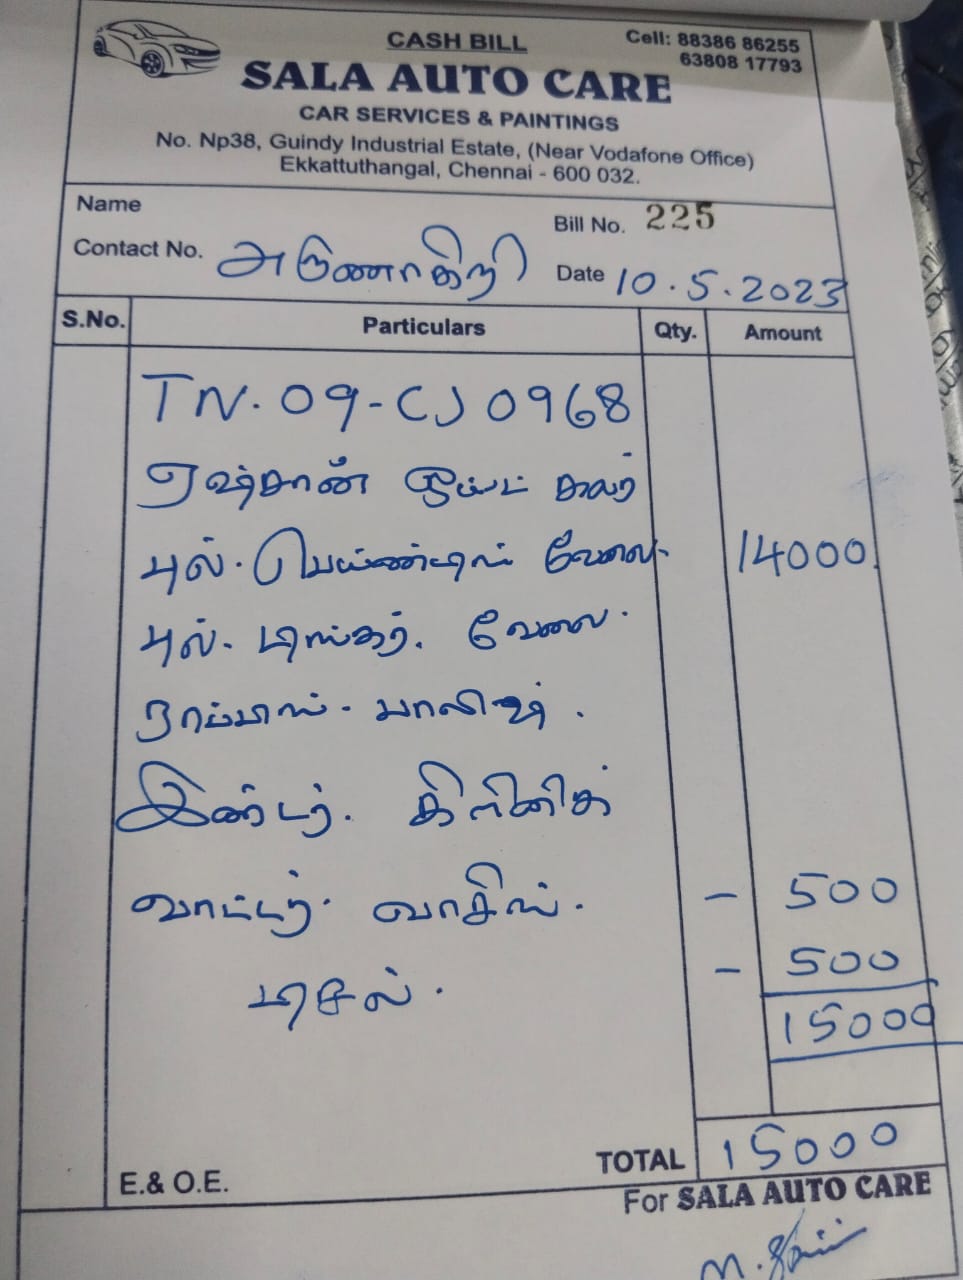 CASH BILL
Cell: 88386 86255
63808 17793
SALA AUTO CARE
CAR SERVICES & PAINTINGS
No. Np38, Guindy Industrial Estate, (Near Vodafone Office)
Ekkattuthangal, Chennai - 600 032.
Name
Bill No. 225
Contact No. அருணாகிறி
Date 10.5.2023
S.No. Particulars Qty. Amount
TN.09-CJ0968
கலர்
புல். பெய்ண்டிங் வேலை. 14000.
புல். டிங்கர். வேலை.
பாலிஷ்.
இண்டர். கிளினிக்
வாட்டர். வாசிங். - 500
டிசல். - 500
15000
TOTAL 15000
E.& O.E.
For SALA AUTO CARE